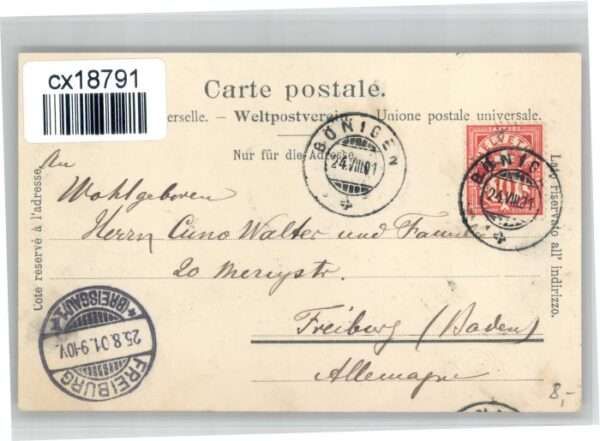 cx18791
Carte postale.
erselle. — Weltpostverein. — Unione postale universale.
Nur für die Adresse.
BÖNIGEN
24.VIII.01
HELVETIA
BÖNIG
24.VIII.01
An
Wohlgeboren
Herrn Cuno Walter und Familie
20 Mercystr.
Freiburg (Baden)
Allemagne
Côté réservé à l'adresse.
Lato riservato all' indirizzo.
FREIBURG
25.8.01.9-10V.
(BREISGAU)
8,-